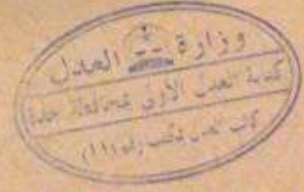 وزارة العدل
كتابة العدل الأولى بمحافظة جدة
كاتب العدل المكلف رقم (١١١)